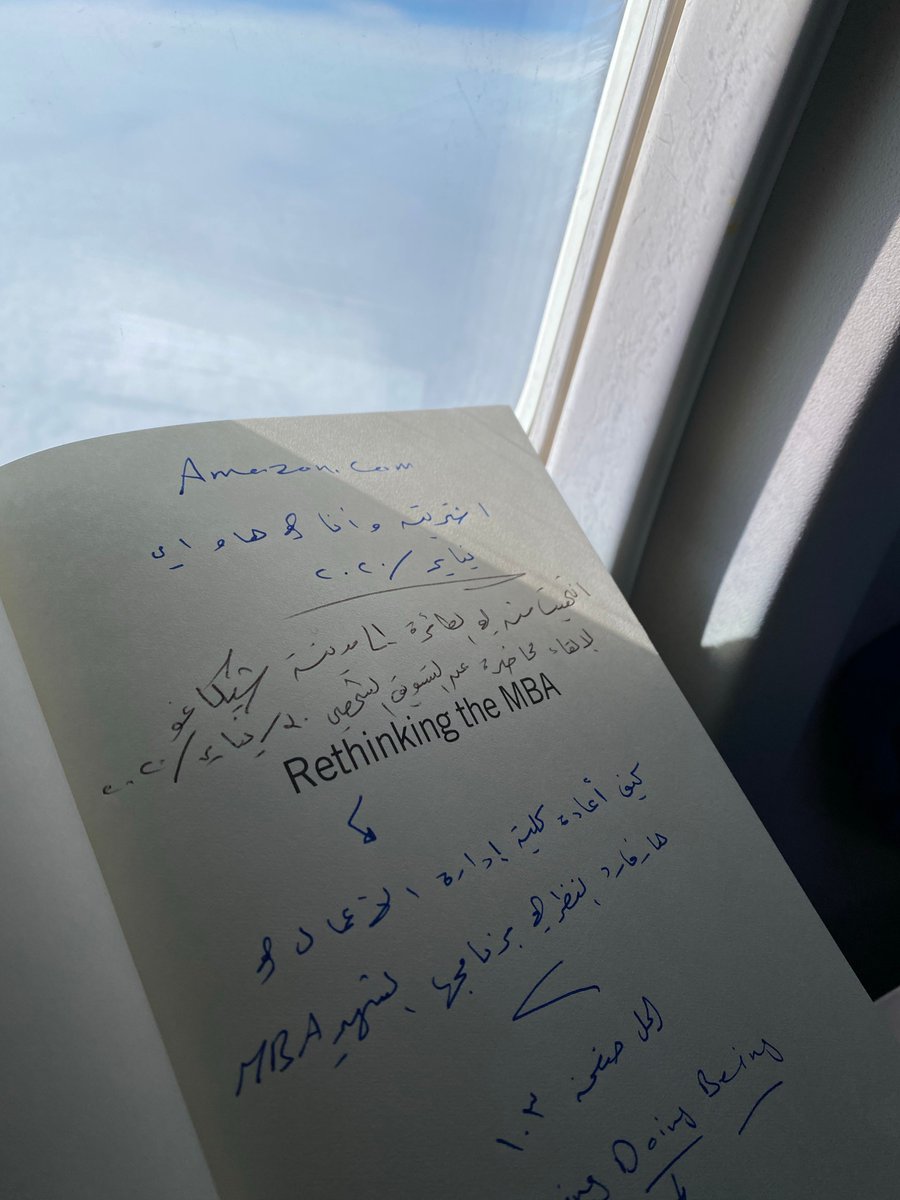 Amazon.com
اشتريته وأنا في هاواي
يناير / ٢٠٢٠
انتهيت منه في الطائرة لمدينة شيكاغو
لإلقاء محاضرة عن التسويق الشخصي ٢٠ / يناير / ٢٠٢٠
Rethinking the MBA
كيف أعادة كلية إدارة الأعمال في
هارفارد النظر في برنامجها الشهير MBA
الحل صفحة ١٠٣
Doing Being